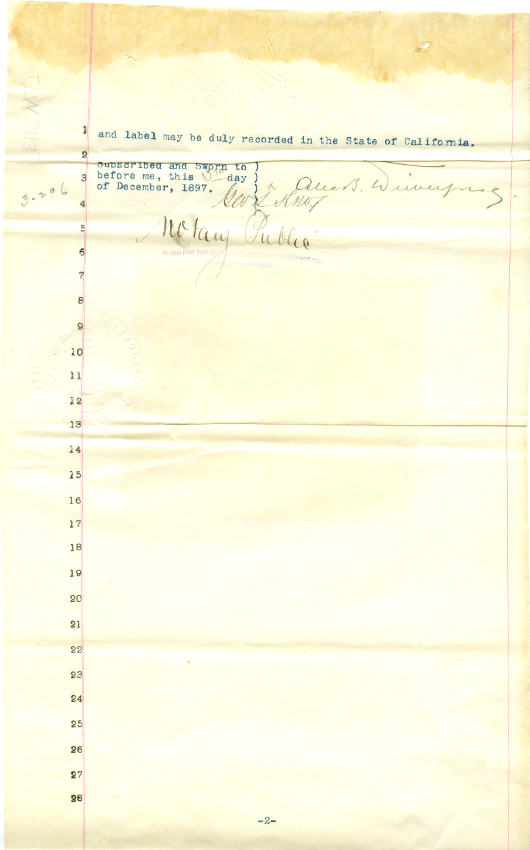 1 and label may be duly recorded in the State of California.
2
Subscribed and Sworn to )
3 before me, this day )
of December, 1897. )
3.206
4 Geo. T. Knox
5 Notary Public
6
7
8
9
10
11
12
13
14
15
16
17
18
19
20
21
22
23
24
25
26
27
28
-2-